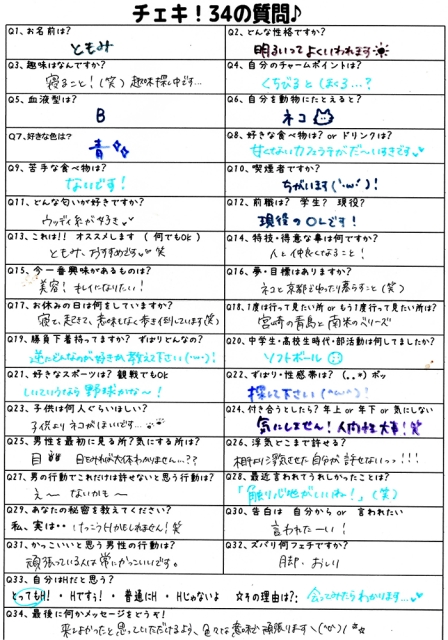 チェキ！34の質問♪
Q1、お名前は？
ともみ
Q2、どんな性格ですか？
明るいってよくいわれます
Q3、趣味はなんですか？
寝ること！（笑）趣味探し中です…
Q4、自分のチャームポイントは？
くちびると ほくろ…？
Q5、血液型は？
B
Q6、自分を動物にたとえると？
ネコ
Q7、好きな色は？
青
Q8、好きな食べ物は？ or ドリンクは？
甘くないカフェラテがだ〜いすきです
Q9、苦手な食べ物は？
ないです！
Q10、喫煙者ですか？
ちがいます
Q11、どんな匂いが好きですか？
ウッディ系が好き
Q12、前職は？ 学生？ 現役？
現役のOLです！
Q13、これは!! オススメします （ 何でもOK ）
ともみ、おすすめです 笑
Q14、特技・得意な事は何ですか？
人と仲良くなること！
Q15、今一番興味があるものは？
美容！キレイになりたい！
Q16、夢・目標はありますか？
ネコと京都でゆったり暮らすこと（笑）
Q17、お休みの日は何をしていますか？
寝て、起きて、意味もなく歩き倒しています（笑）
Q18、1度は行って見たい所 or もう1度行って見たい所は？
宮崎の青島と南米のベリーズ
Q19、勝負下着持ってますか？ ずばりどんなの？
逆にどんなのが好きか教えて下さい
Q20、中学生・高校生時代・部活動は何してましたか？
ソフトボール
Q21、好きなスポーツは？ 観戦でもOK
しいていうなら野球かな〜！
Q22、ずばり・性感帯は？（..*）ポッ
探して下さい
Q23、子供は何人ぐらいほしい？
子供よりネコがほしいです…
Q24、付き合うとしたら？ 年上 or 年下 or 気にしない
気にしません！人間性大事！笑
Q25、男性を最初に見る所？気にする所は？
目 目をみれば大体わかりません…??
Q26、浮気どこまで許せる？
相手より浮気させた自分が許せないっ!!!
Q27、男の行動でこれだけは許せないと思う行動は？
え〜 ないかも〜
Q28、最近言われてうれしかったことは？
「触り心地がいいね！」（笑）
Q29、あなたの秘密を教えてください？
私、実は‥ けっこうHかもしれません！笑
Q30、告白は 自分から or 言われたい
言われた〜い！
Q31、かっこいいと思う男性の行動は？
頑張っている人は常にかっこいいです。
Q32、ズバリ何フェチですか？
脚、おしり
Q33、自分はHだと思う？
とってもH！ ・ Hですぅ！ ・ 普通にH ・ Hじゃないよ ☆その理由は？：会ってみたらわかります…
Q34、最後に何かメッセージをどうぞ！
来てよかったと思っていただけるよう、色々な意味で頑張ります